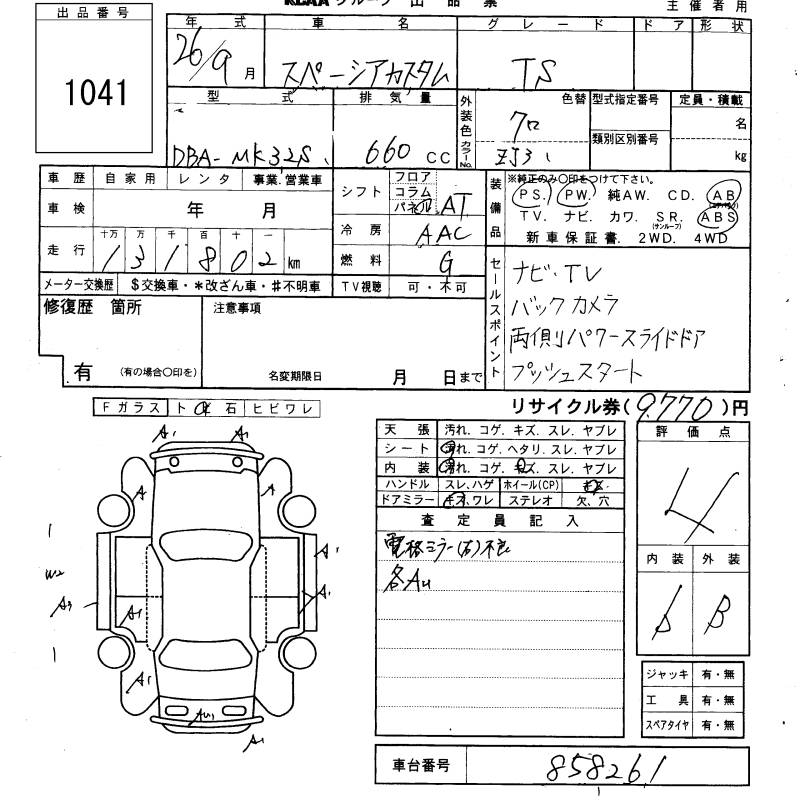 出品番号
1041
KCAA グループ 出品票
主催者用
年式 車名 グレード ドア 形状
26/9月 スペーシアカスタム TS
型式 排気量 外装色 カラーNo. 色替 型式指定番号 定員・積載
DBA-MK32S 660cc クロ ZJ3 類別区別番号 名
kg
車歴 自家用 レンタ 事業.営業車
車検 年 月
走行 十万 万 千 百 十 一
131802km
メーター交換歴 $交換車・*改ざん車・♯不明車
シフト フロア コラム パネル AT
冷房 AAC
燃料 G
TV視聴 可・不可
装備品
※純正のみ〇印をつけて下さい。
PS. PW. 純AW. CD. AB
(エアバック)
TV. ナビ. カワ. SR. ABS
(サンルーフ)
新車保証書. 2WD. 4WD
セールスポイント
ナビ・TV
バックカメラ
両側パワースライドドア
プッシュスタート
修復歴 箇所
有 (有の場合〇印を)
注意事項
名変期限日 月 日まで
リサイクル券(9770)円
Fガラス ト 石 ヒビワレ
A1 A1
A A
A1
W2
A2 A1 A1
A1
AU1
A1
天張 汚れ. コゲ. キズ. スレ. ヤブレ
シート 汚れ. コゲ. ヘタリ. スレ. ヤブレ
内装 汚れ. コゲ. キズ. スレ. ヤブレ
ハンドル スレ、ハゲ ホイール(CP) キズ
ドアミラー キズ、ワレ ステレオ 欠、穴
査定員記入
電格ミラー(右)不良
各AU
評価点
4
内装 外装
B
ジャッキ 有・無
工具 有・無
スペアタイヤ 有・無
車台番号 858261